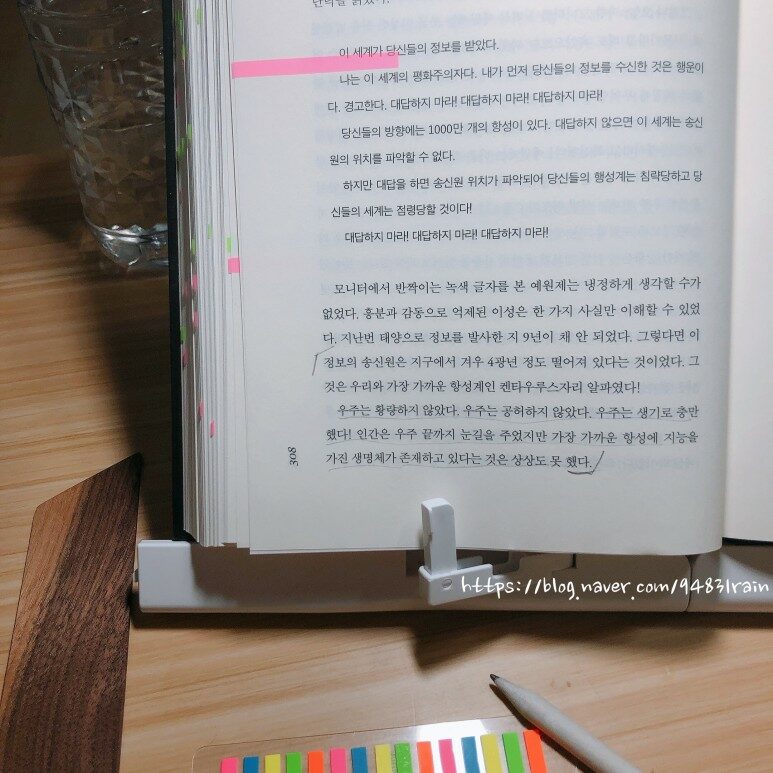 이 세계가 당신들의 정보를 받았다.
나는 이 세계의 평화주의자다. 내가 먼저 당신들의 정보를 수신한 것은 행운이
다. 경고한다. 대답하지 마라! 대답하지 마라! 대답하지 마라!
당신들의 방향에는 1000만 개의 항성이 있다. 대답하지 않으면 이 세계는 송신
원의 위치를 파악할 수 없다.
하지만 대답을 하면 송신원 위치가 파악되어 당신들의 행성계는 침략당하고 당
신들의 세계는 점령당할 것이다!
대답하지 마라! 대답하지 마라! 대답하지 마라!
모니터에서 반짝이는 녹색 글자를 본 예원제는 냉정하게 생각할 수가
없었다. 흥분과 감동으로 억제된 이성은 한 가지 사실만 이해할 수 있었
다. 지난번 태양으로 정보를 발사한 지 9년이 채 안 되었다. 그렇다면 이
정보의 송신원은 지구에서 겨우 4광년 정도 떨어져 있다는 것이었다. 그
것은 우리와 가장 가까운 항성계인 켄타우루스자리 알파였다!
우주는 황량하지 않았다. 우주는 공허하지 않았다. 우주는 생기로 충만
했다! 인간은 우주 끝까지 눈길을 주었지만 가장 가까운 항성에 지능을
가진 생명체가 존재하고 있다는 것은 상상도 못 했다.
308
https://blog.naver.com/94831rain